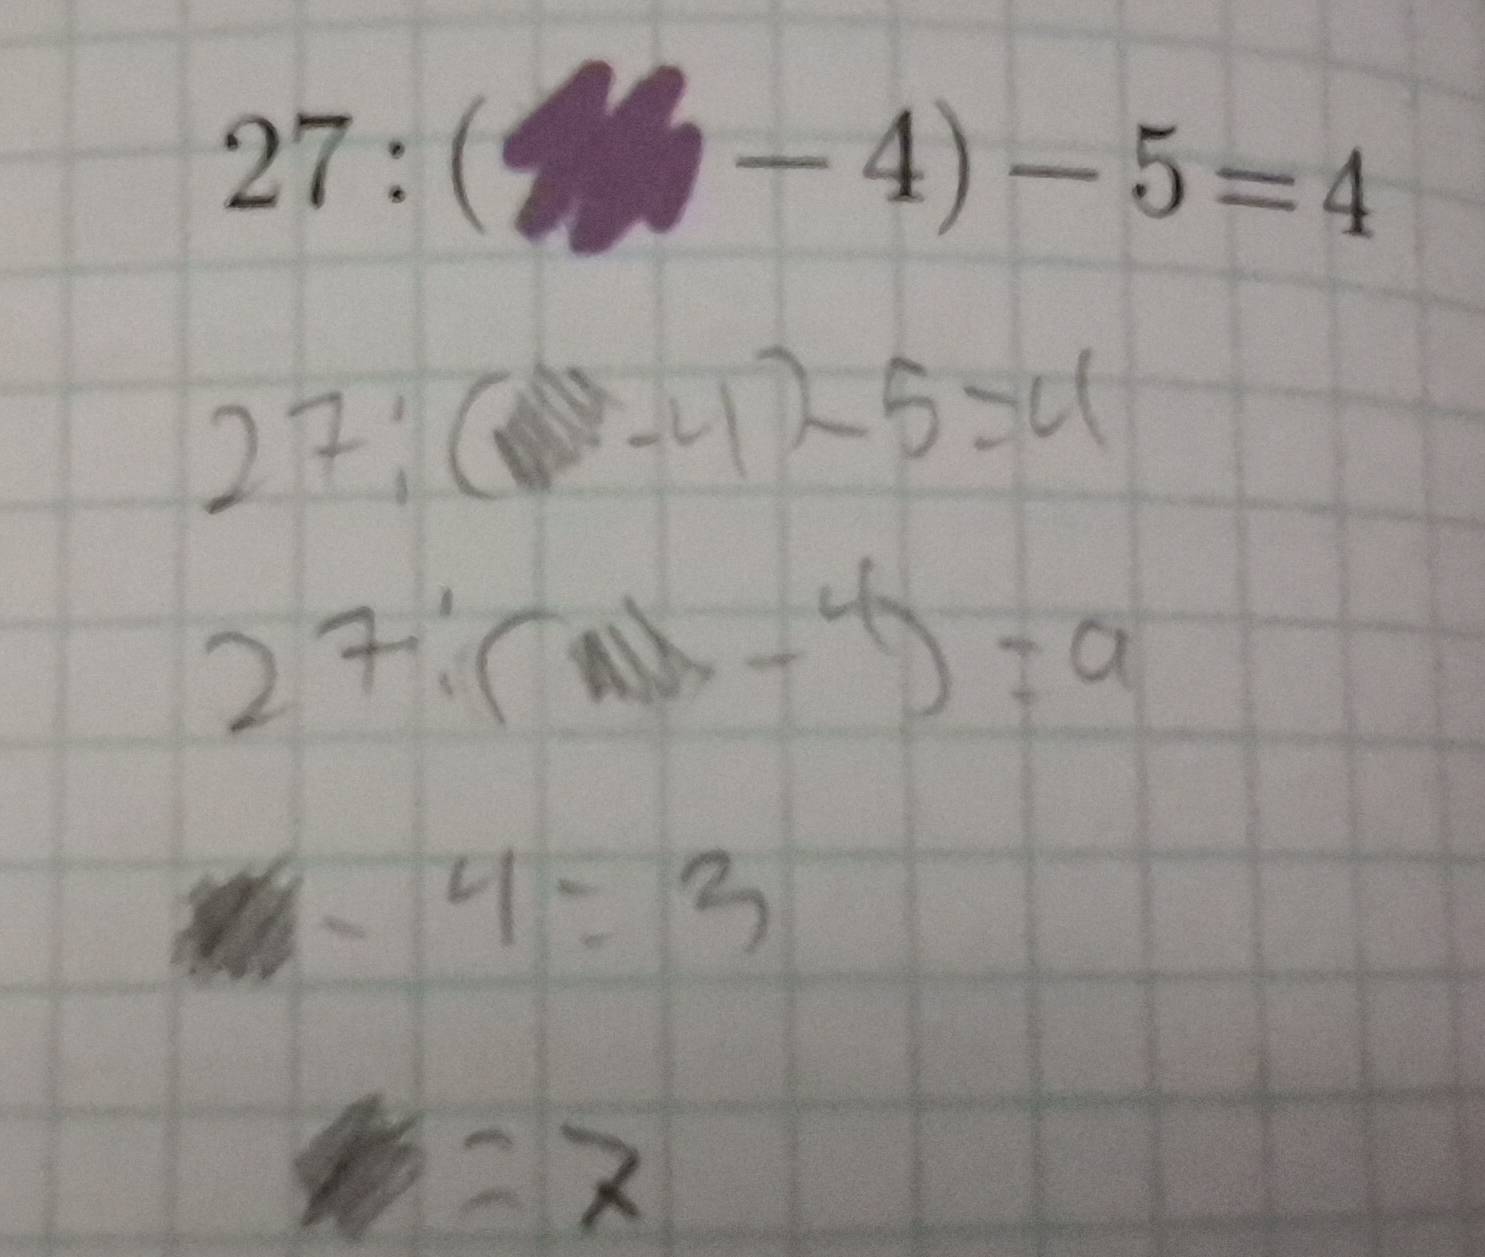 27 : ( - 4) - 5 = 4
27 : ( - 4) - 5 = 4
27 : ( - 4) = 9
- 4 = 3
= 7